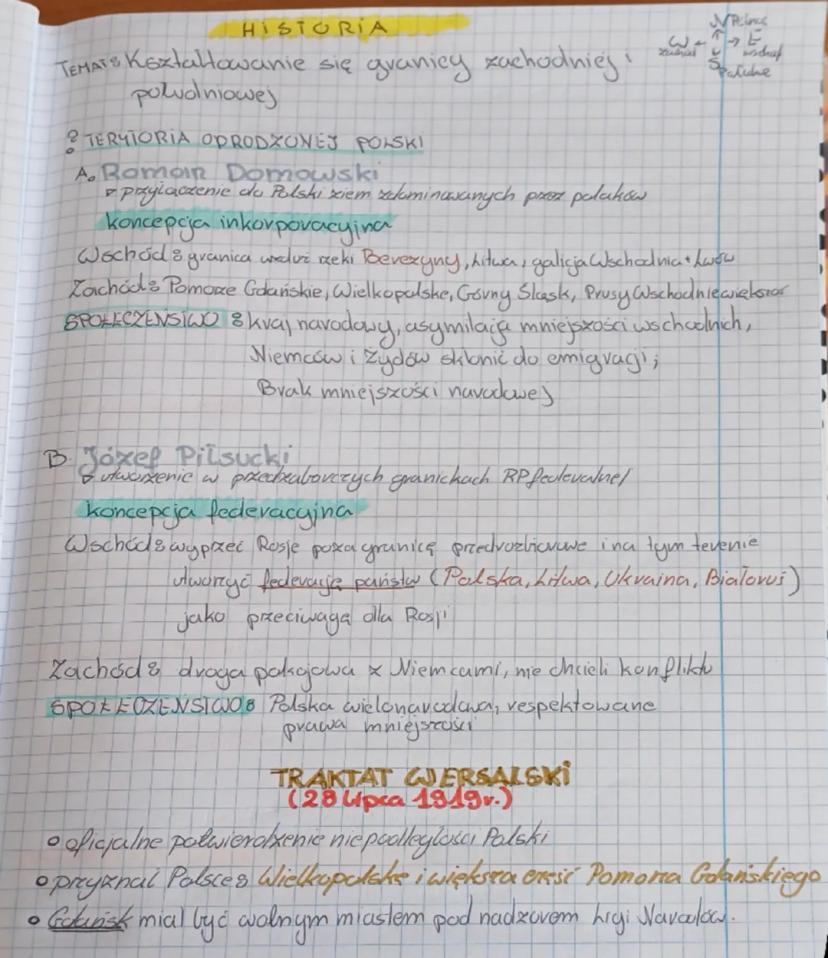 HISTORIA
N Północ
W ← → E
zachód wschód
S Południe
TEMAT: Kształtowanie się granicy zachodniej i
południowej
? TERYTORIA ODRODZONEJ POLSKI
A. Roman Domowski
przyłączenie do Polski ziem zdominowanych przez polaków
koncepcja inkorporacyjna
Wschód: granica wzdłuż rzeki Berezyny, Litwa, galicja Wschodnia + Lwów
Zachód: Pomorze Gdańskie, Wielkopolske, Górny Śląsk, Prusy Wschodnie większość
SPOŁECZEŃSTWO: kraj narodowy, asymilacja mniejszości wschodnich,
Niemców i Żydów skłonić do emigracji;
Brak mniejszości narodowej
B. Józef Piłsucki
utworzenie w przedzaborczych granickach RP federalnej
koncepcja federacyjna
Wschód: wyprzeć Rosje poza granicę przedrozbiorowe i na tym terenie
utworzyć federacje państw (Polska, Litwa, Ukraina, Białoruś)
jako przeciwaga dla Rosji
Zachód: droga pokojowa z Niemcami, nie chcieli konfliktu
SPOŁECZEŃSTWO: Polska wielonarodowa, respektowane
prawa mniejszości
TRAKTAT WERSALSKI
(28 Lipca 1919r.)
• oficjalne potwierdzenie niepodległości Polski
• przyznał Polsce: Wielkopolske i większa cześć Pomorza Gdańskiego
• Gdańsk miał być wolnym miastem pod nadzorem Ligi Narodów.